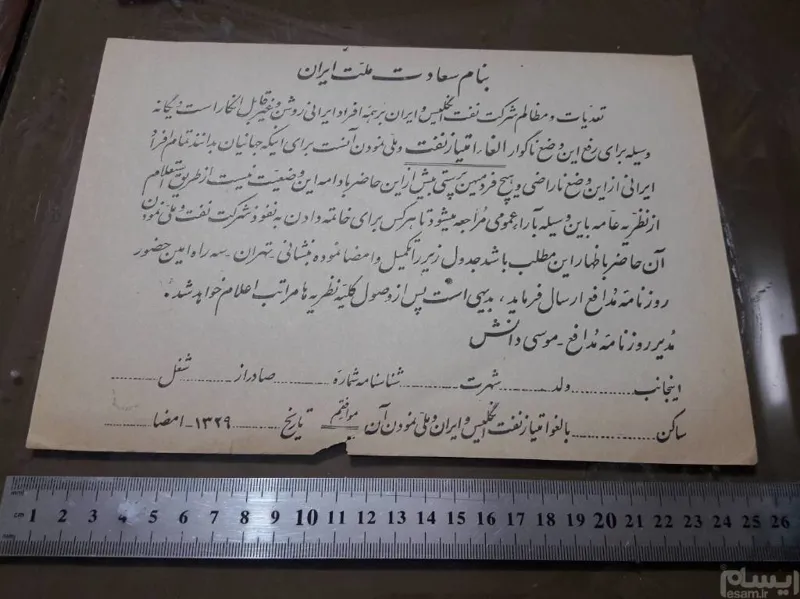 بنام سعادت ملت ایران
تعدیات و مظالم شرکت نفت انگلیس و ایران بر همه افراد ایرانی روشن و غیر قابل انکار است یگانه
وسیله برای رفع این وضع ناگوار الغاء امتیاز نفت و ملی نمودن آنست برای اینکه جهانیان بدانند تمام افراد
ایرانی از این وضع ناراضی و هیچ فرد میهن پرستی بیش از این حاضر بادامه این وضعیت نیست از طریق استعلام
از نظریه عامه باین وسیله بآراء عمومی مراجعه میشود تا هر کس برای خاتمه دادن به نفوذ شرکت نفت و ملی نمودن
آن حاضر باظهار این مطلب باشد جدول زیر را تکمیل و امضا نموده بنشانی - تهران - سه راه امین حضور
روزنامه مدافع ارسال فرماید، بدیهی است پس از وصول کلیه نظریه ها مراتب اعلام خواهد شد.
مدیر روزنامه مدافع - موسی دانش
اینجانب ........ ولد ........ شهرت ........ شناسنامه شماره ........ صادر از ........ شغل ........
ساکن ........ بالغو امتیاز نفت انگلیس و ایران و ملی نمودن آن موافقم تاریخ ........ ۱۳۲۹ - امضا ........
mm
cm 1 2 3 4 5 6 7 8 9 10 11 12 13 14 15 16 17 18 19 20 21 22 23 24 25 26
ایسام
esam.ir